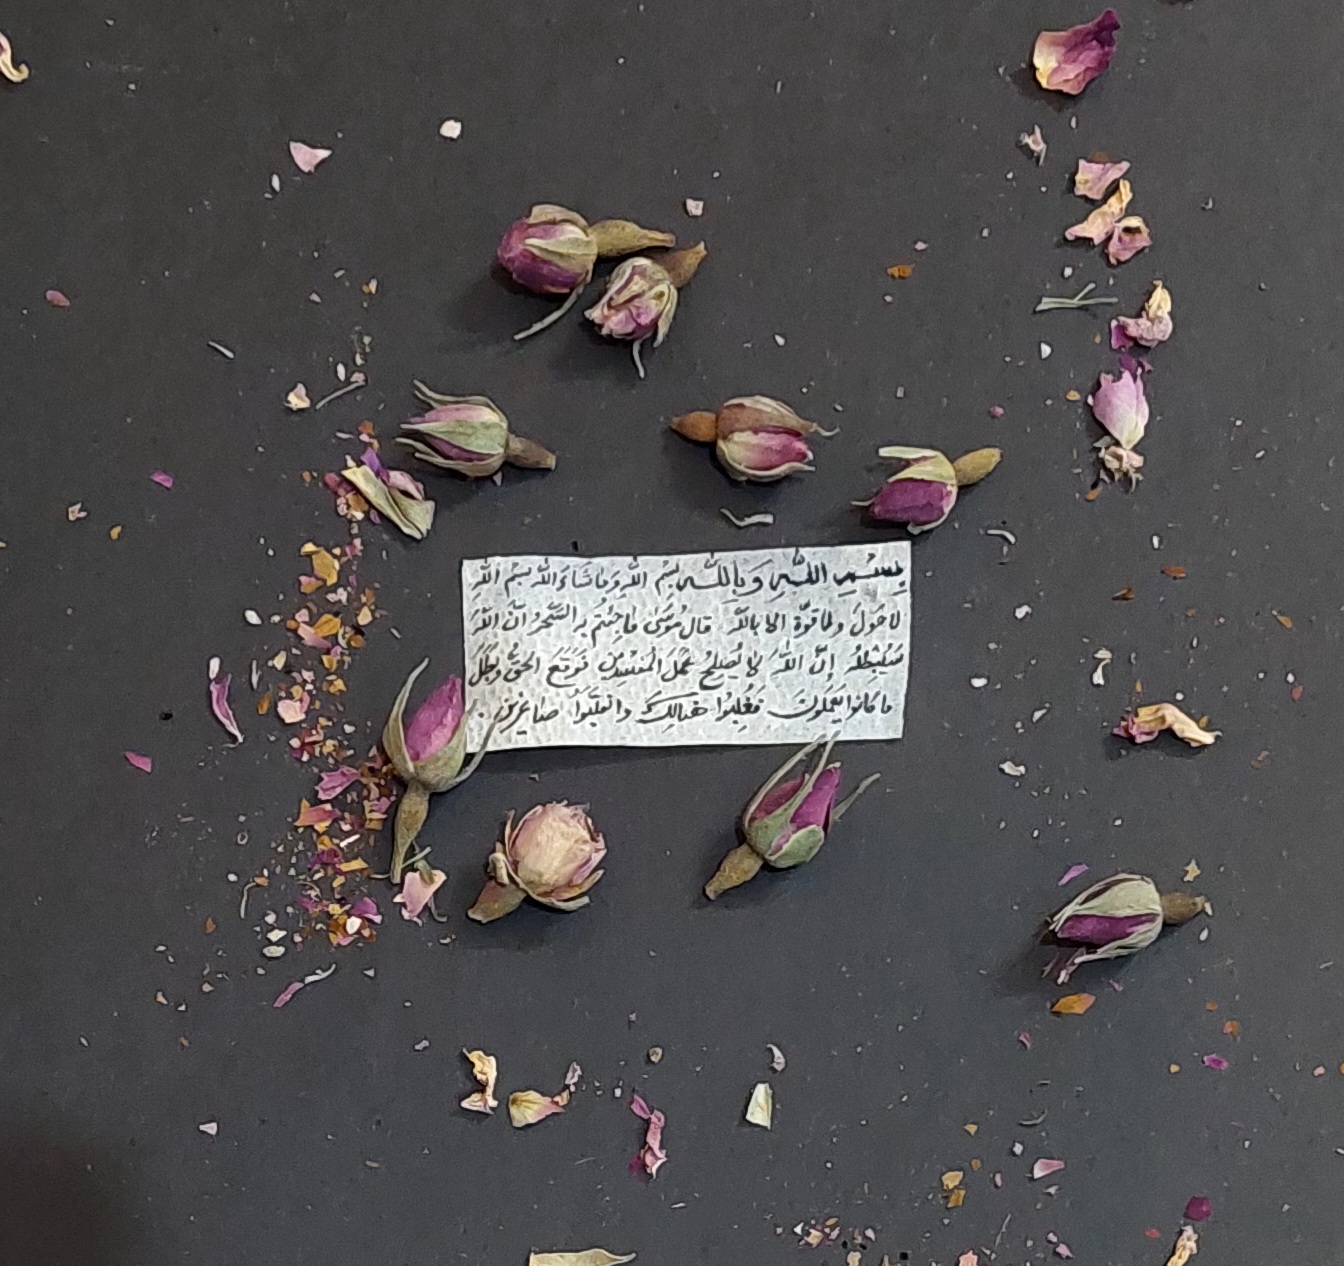 بِسْمِ اللّٰهِ وَبِاللّٰهِ بِسْمِ اللّٰهِ وَمَا شَاءَ اللّٰه بِسْمِ اللّٰهِ
لا حَولَ ولا قوّة الا باللّٰهِ قالَ مُوسَىٰ ما جِئتُم بِهِ السِّحرُ انَّ اللّٰهَ
سَيُبْطِلُهُ إِنَّ اللّٰهَ لا يُصلِحُ عَمَلَ المُفسِدِينَ فَوَقَعَ الحَقُّ وَبَطَلَ
ما كانوا يَعمَلونَ فَغُلِبُوا هنالِكَ وانقَلَبُوا صاغِرينَ